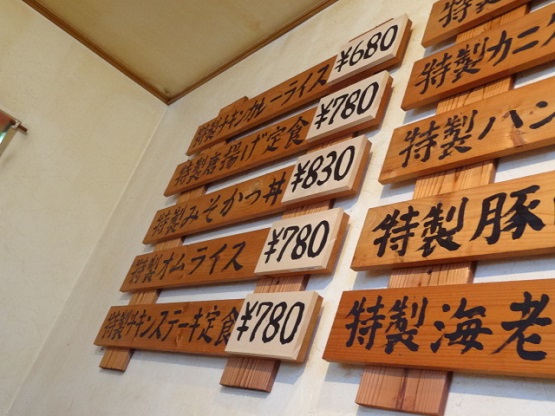 特製チキンカレーライス ¥680
特製唐揚げ定食 ¥780
特製みそかつ丼 ¥830
特製オムライス ¥780
特製チキンステーキ定食 ¥780
特製
特製カニ
特製ハン
特製豚
特製海老